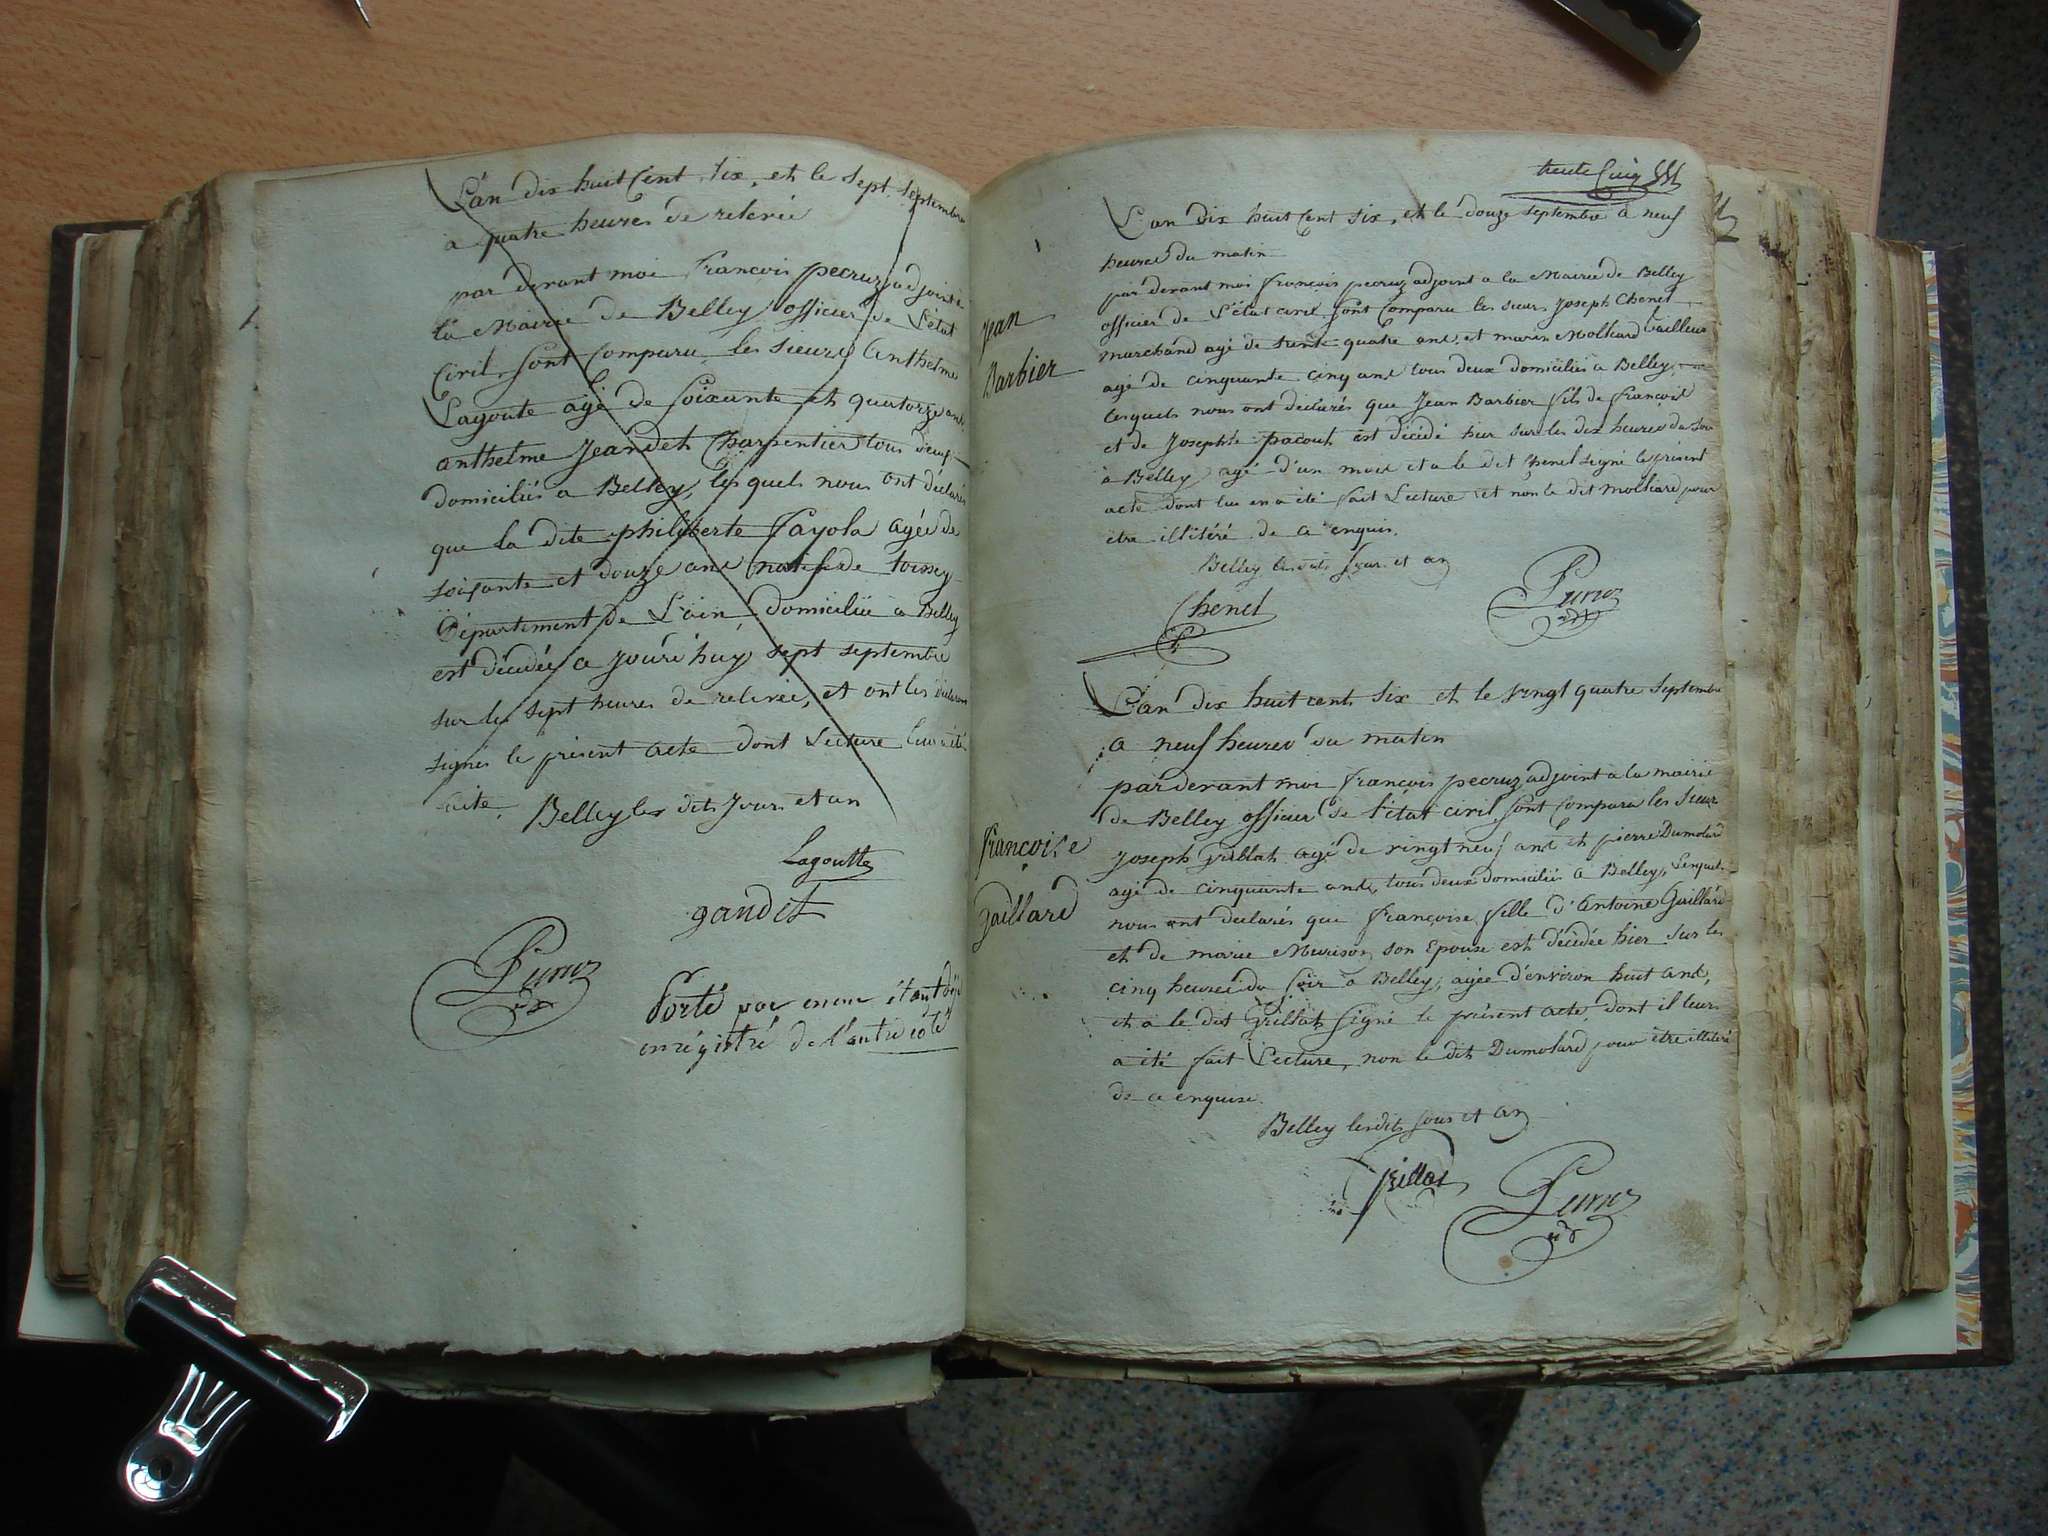 L'an dix huit Cent Six, et le sept Septembre
à quatre heures de relevée
par devant moi françois pecruz adjoint à
la Mairie de Belley officier de L'état
Civil, Sont Comparu les sieurs Anthelme
Lagoute agé de Soixante et quatorze ans
anthelme Jeandet Charpentier tous deux
domiciliés a Belley, lesquels nous ont declarés
que la dite philiberte Fayola agée de
soixante et douze ans native de toissey
Département de L'ain, domiciliée a Belley
est décédée a jourd'huy sept septembre
sur les sept heures de relevée, et ont les déclarans
signés le présent acte dont Lecture leur a été
faite. Belley les dits Jour et an
Lagoutte
gandet
Porté par erreur étant déjà
enrégistré de l'autre coté
trente Cinq
L'an dix huit Cent Six, et le douze septembre à neuf
heures du matin
par devant moi françois pecruz adjoint a la Mairie de Belley
officier de L'état civil Sont Comparu les sieurs Joseph Chenet
Jean
marchand agé de trente quatre ans, et marin Molliard tailleur
Barbier
agé de cinquante cinq ans tous deux domiciliés a Belley,
lesquels nous ont declarés que Jean Barbier fils de françois
et de Josephte pacout est décédé hier sur les dix heures du Soir
à Belley agé d'un mois et a le dit Chenet signé le présent
acte dont lui en a été fait Lecture et non le dit Molliard pour
être illitéré de ce enquis.
Belley les dits Jour et an
Chenet
L'an dix huit cent Six et le vingt quatre septembre
a neuf heures du matin
par devant moi françois pecruz adjoint a la mairie
de Belley officier de l'état civil Sont Comparu les Sieurs
françoise
Joseph Grillat agé de vingt neuf ans et pierre Dumolard
agé de cinquante ans, tous deux domiciliés a Belley, Lesquels
Gaillard
nous ont declarés que françoise fille d'Antoine Gaillard
et de marie Murison, son Epouse est décédée hier sur les
cinq heures du Soir à Belley, agée d'environ huit ans,
et a le dit Grillat Signé le présent acte, dont il leur
a été fait Lecture, non le dit Dumolard pour être illitéré
de ce enquise.
Belley les dits Jour et an
Grillat